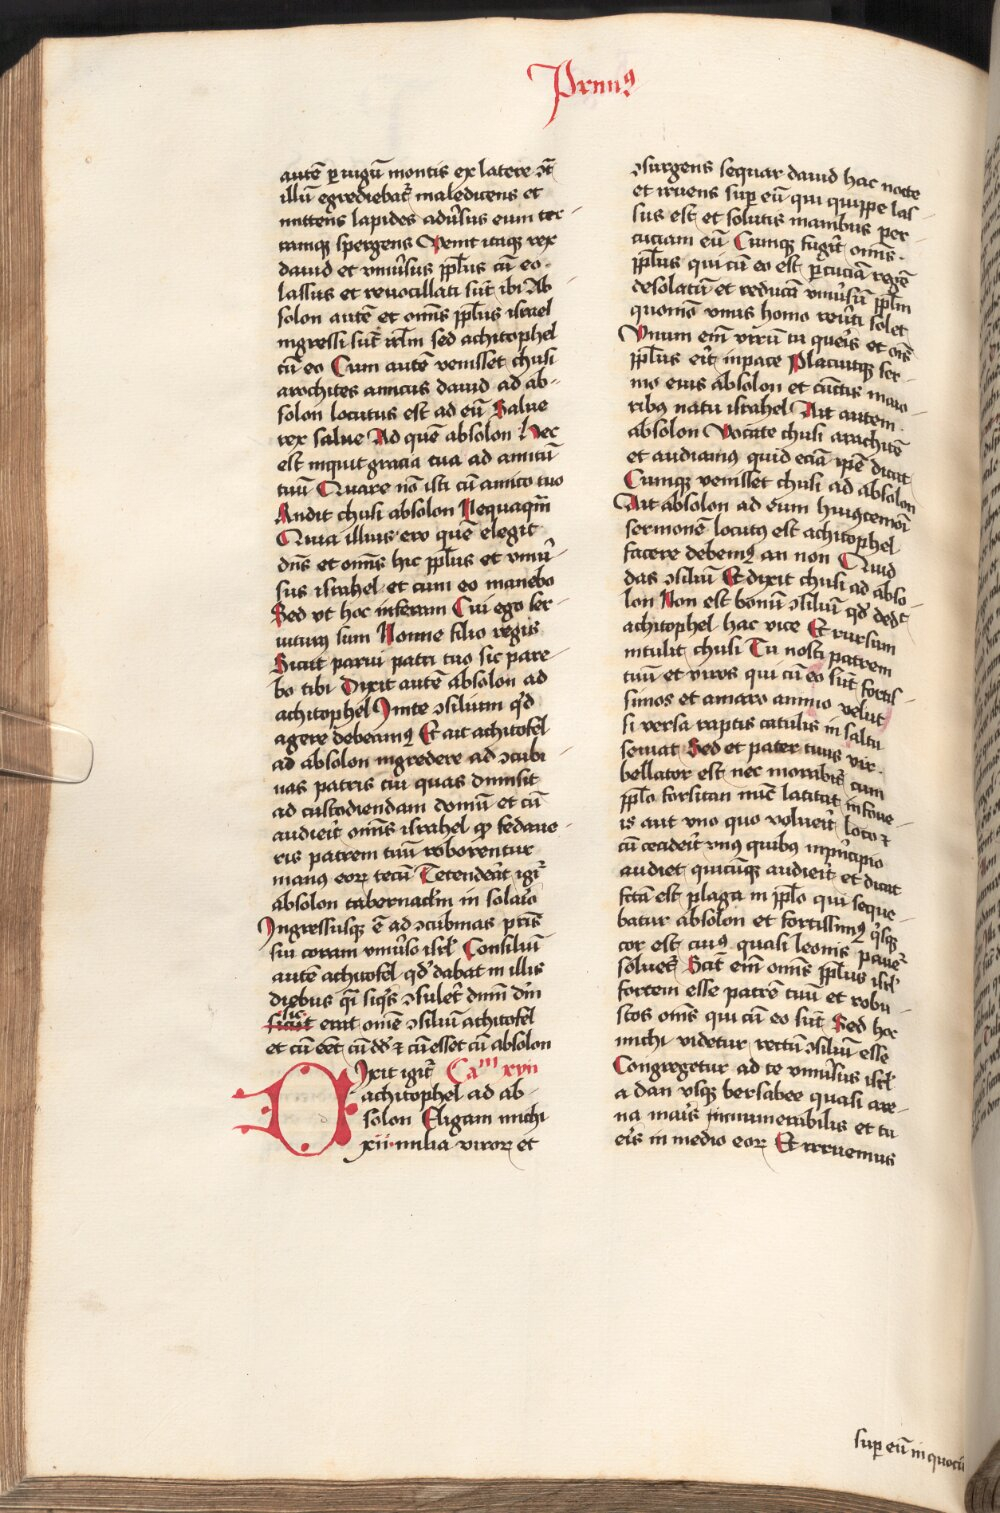 Primꝰ
autē p iugū montis ex latere ɔt̄
illū egrediebat᷑ maledicens et
mittens lapides adūsus eum ter
ramqꝫ spergens Venit itaqꝫ rex
dauid et vniūsus ppl̄us cū eo
lassus et reuocillati sūt ibi Ab
solon autē et omīs ppl̄us israel
ingressi sūt irl̄m sed achitophel
cū eo Cum autē venisset chusi
arochites amicus dauid ad ab-
solon locutus est ad eū Salue
rex salue Ad quē absolon Hec
est inquit gracia tua ad amicū
tuū Quare nō isti cū amico tuo
Andit chusi absolon Nequaqm̄
Quia illius ero quē elegit
dn̄s et omīs hic ppl̄us et vniū
sus israhel et cum eo manebo
Sed vt hoc inferam Cui ego ser
uiturꝰ sum Nonne filio regis
Sicut parui patri tuo sic pare
bo tibi Dixit autē absolon ad
achitophel Inite ɔsilium qd̄
agere debeamꝰ Et ait achitofel
ad absolon ingredere ad ɔcubi
nas patris tui quas dimisit
ad custodiendam domū et cū
audieīt omīs israhel qꝙ fedaue
ris patrem tuū roborentur
manus eoꝝ tecū Tetendeīt igi᷑
absolon tabernacl̄m in solaīo
Ingressusqꝫ ē ad ɔcubinas pr̄is
sui coram vniūso isrl̄ Consiliū
autē achitofel qd̄ dabat in illis
diebus q̄i siqs̄ ɔsuleīt dūm dn̄m
sic
sicut erat omē ɔsiliū achitofel
et cū eēt cū dd̄ ⁊ cū esset cū absolon
Dixit igit᷑ Caᵐ xvii
achitophel ad ab-
solon Eligam michi
xii milia viroꝝ et
ɔsurgens sequar dauid hac nocte
et irruens sup eū qui quippe las
sus est et solutis manibus per
cuciam eū Cumqꝫ fugīt omīs
ppl̄us qui cū eo est pcuciā regē
desolatū et reducā vniūsū ppl̄m
quomō vnus homo reūti solet
Vnum em̄ virū tu queīs et oīs
ppl̄us eīt inpace Placuitqꝫ ser
mo eius absolon et cūctis maio
ribꝰ natu israhel Ait autem
absolon Vocate chusi arachitē
et audiamꝰ quid eciā ip̄e dicat
Cumqꝫ venisset chusi ad absolon
Ait absolon ad eum huiꝰcemōi
sermonē locutꝰ est achitophel
facere debemꝰ an non Quid
das ɔsiliū Et dixit chusi ad abso
lon Non est bonū ɔsiliū qd̄ dedᵗ
achitophel hac vice Et rursum
intulit chusi Tu nosti patrem
tuū et viros qui cū eo sūt fortis
simos et amaro animo velut
si versa raptis catulis in saltu
seuiat Sed et pater tuus vir
bellator est nec morabit᷑ cum
ppl̄o forsitan nūc latitat infoue
is aut vno quo volueīt loco ⁊
cū cecideīt vnꝰ quibꝰ inpn̄cipio
audiet quicūqꝫ audieīt et dicat
fc̄tā est plaga in ppl̄o qui seque
batur absolon et fortissimꝰ qꝰsqꝫ
cor est cuiꝰ quasi leonis paue᷑
soluet᷑ Scit em̄ omīs ppl̄us isrl̄
fortem esse patrē tuū et robu
stos omīs qui cū eo sūt Sed hoc
michi videtur rectū ɔsiliū esse
Congregetur ad te vniūsus isrl̄
a dan vsqꝫ bersabee quasi are-
na maīs innumerabilis et tu
eīs in medio eoꝝ Et irruemus
sup eū in quocū